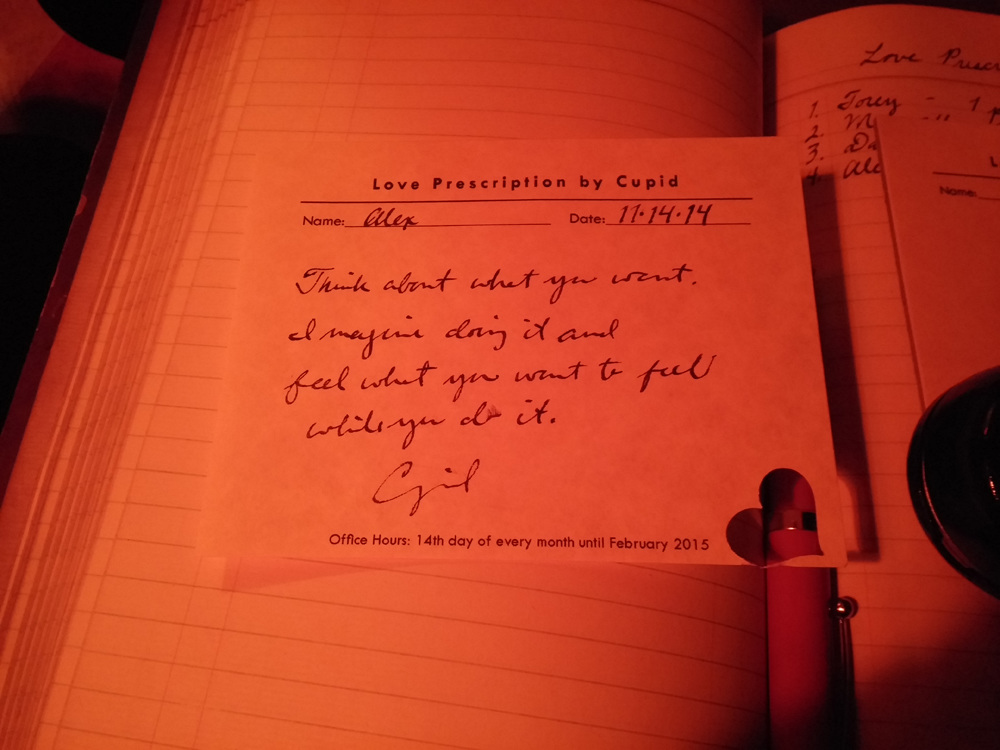 Love Prescription by Cupid
Name: Alex Date: 11·14·14
Think about what you want.
Imagine doing it and
feel what you want to feel
while you do it.
Cupid
Office Hours: 14th day of every month until February 2015
Love
1. Torey - 1
2. "
3.
4.
Name: